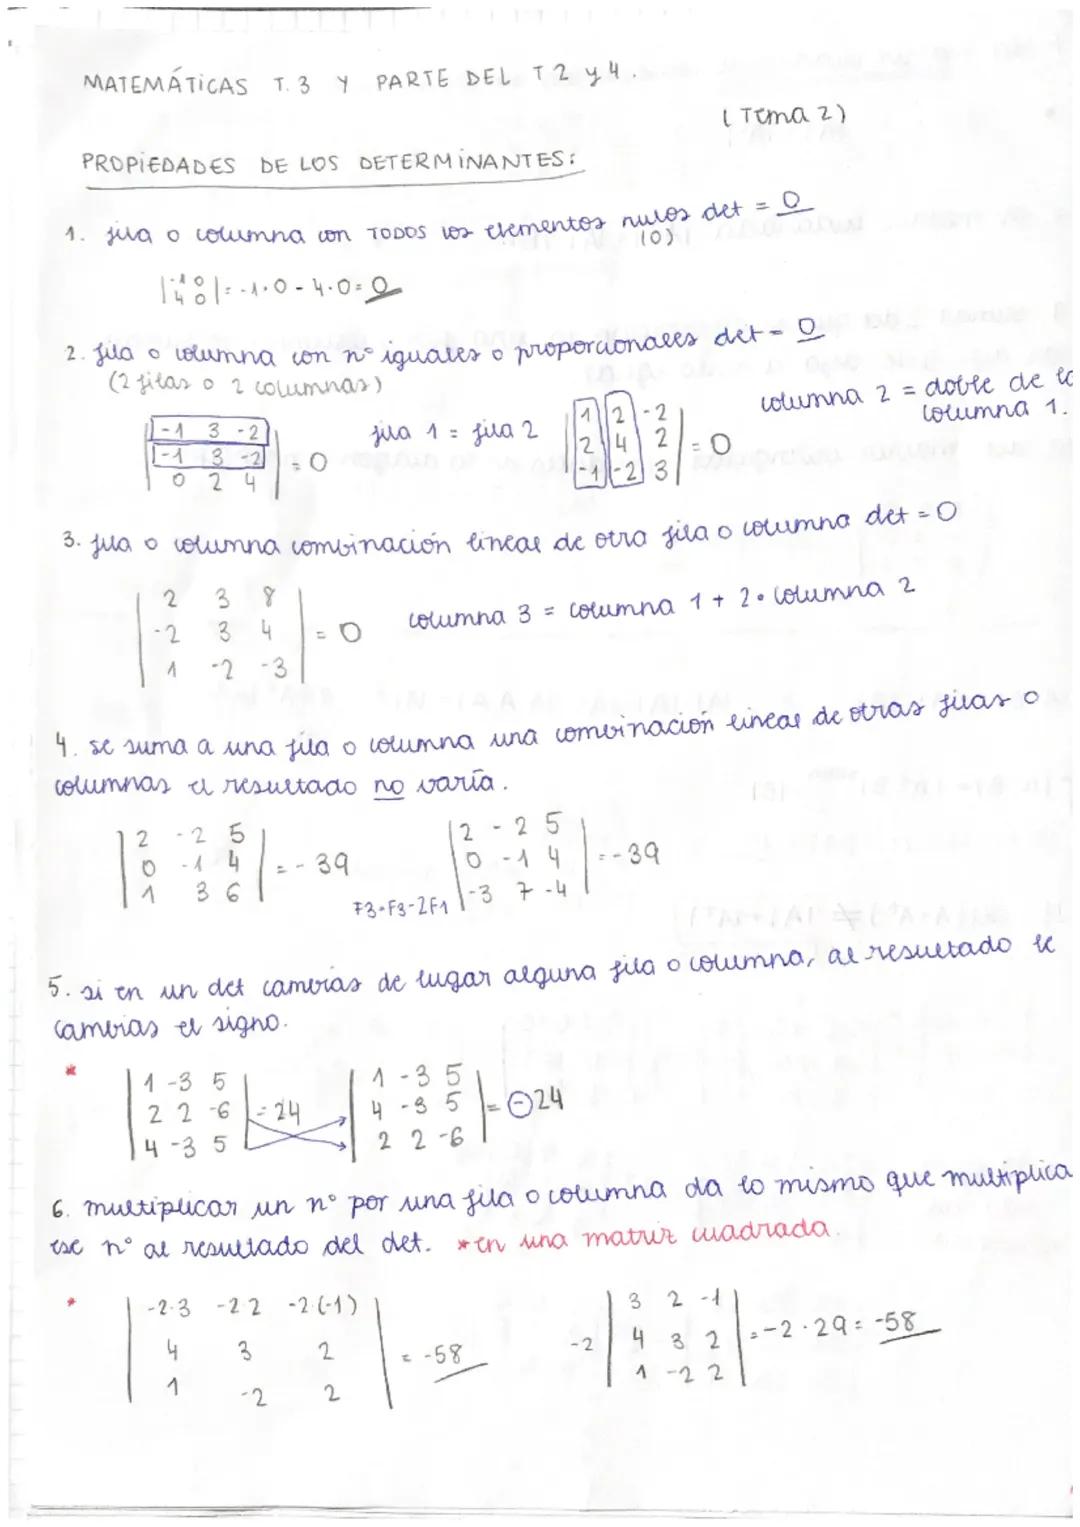 MATEMÁTICAS T.3 Y PARTE DEL T2 y 4.
(Tema 2)
PROPIEDADES DE LOS DETERMINANTES:
1. fila o columna con TODOS los elementos nulos det = 0
(0)
|-1 0|
|4 0| = -1·0 - 4·0 = 0
2. fila o columna con nº iguales o proporcionales det = 0
(2 filas o 2 columnas)
columna 2 = doble de la
columna 1.
|-1 3 -2|
|-1 3 -2| = 0
|0 2 4|
fila 1 = fila 2
|1 2 -2|
|2 4 2| = 0
|-1 -2 3|
3. fila o columna combinación lineal de otra fila o columna det = 0
|2 3 8|
|-2 3 4| = 0
|1 -2 -3|
columna 3 = columna 1 + 2·columna 2
4. se suma a una fila o columna una combinación lineal de otras filas o
columnas el resultado no varía.
|2 -2 5|
|0 -1 4| = -39
|1 3 6|
F3=F3-2F1
|2 -2 5|
|0 -1 4| = -39
|-3 7 -4|
5. si en un det cambias de lugar alguna fila o columna, al resultado le
cambias el signo.
*
|1 -3 5|
|2 2 -6| = 24
|4 -3 5|
|1 -3 5|
|4 -3 5| = -24
|2 2 -6|
6. multiplicar un nº por una fila o columna da lo mismo que multiplica
ese nº al resultado del det. *en una matriz cuadrada.
*
|-2·3 -2·2 -2·(-1)|
|4 3 2| = -58
|1 -2 2|
-2
|3 2 -1|
|4 3 2| = -2·29 = -58
|1 -2 2|